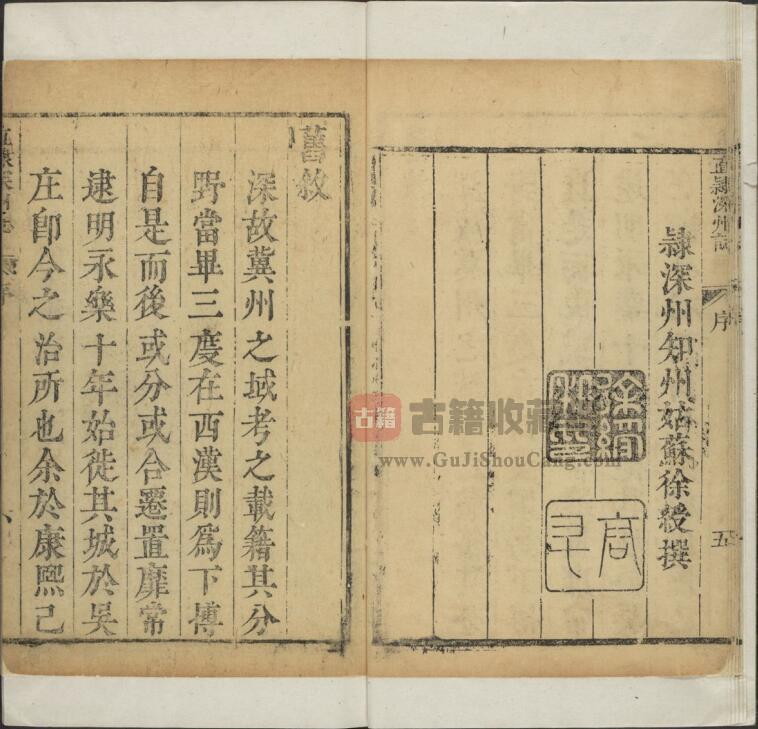 直隸深州誌
序
五
隸深州知州姑蘇徐綬撰
舊敘
深故冀州之域考之載籍其分
野當畢三度在西漢則爲下博
自是而後或分或合遷置靡常
逮明永樂十年始徙其城於吳
庄卽今之治所也余於康熙己
古籍
古籍收藏
www.GuJiShouCang.com